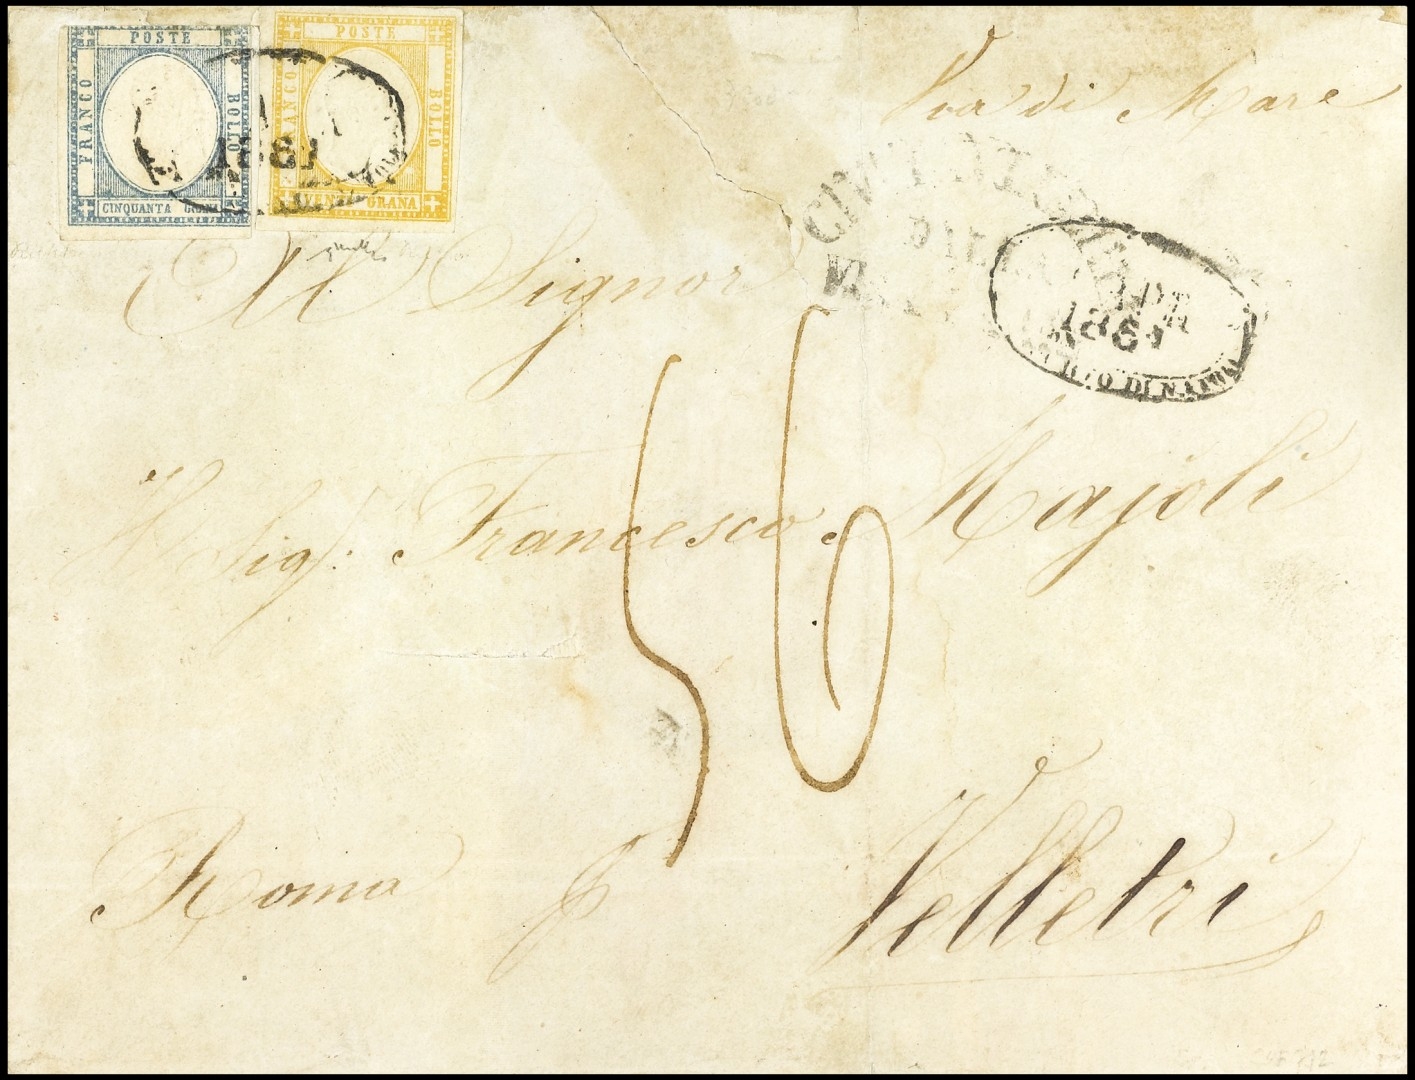 POSTE
FRANCO
BOLLO
CINQUANTA GRANA
POSTE
FRANCO
BOLLO
VENTI GRANA
1861
Via di Mare
Al Signor
1861
PORTO DI NAPOLI
56
Il Sig. Francesco Majoli
Roma p Velletri